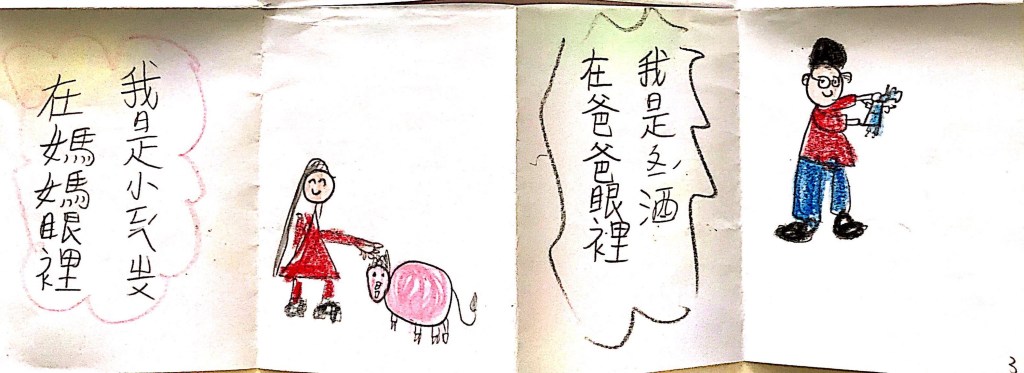 在媽媽眼裡
我是小
在爸爸眼裡
我是冬酒
3